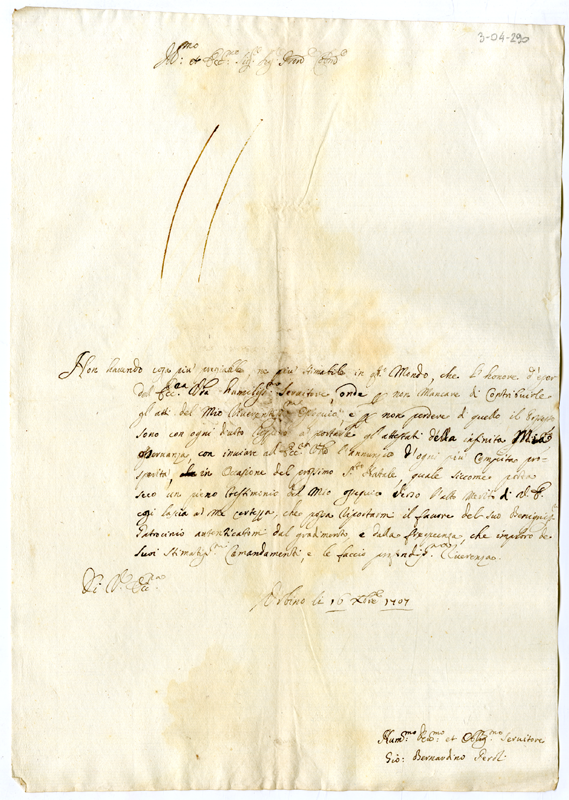 3-04-290
Ill.mo et Ecc.mo Sig.r Sig.r Pron.
Non havendo cosa più pregiabile, ne più stimabile in q.to Mondo, che l'honore d'esser
dell'Ecc.za V.ra humiliss.mo Servitore, onde p non Mancare di Contribuirle
gl'atti del Mio e p non perdere di quello il
sono con ogni à portarle gl'attestati della infinita Mia
con inviare ad Ecc.za V.ra l'annuncio d'ogni più Compita pro-
sperità, in Ocasione del prossimo S.to Natale quale sicome porta
seco un pieno testimonio del Mio ossequio verso l'alto Merito di V. E.
cosi lascia à Me certezza, che possa riportarmi il favore del suo Benignis.mo
Patrocinio autenticatomi dal gradimento, e dalla frequenza, che imploro de
suoi Stimatis.mi Comandamenti, e le faccio profondiss.ma Riverenza.
Di V.ra Ecc.za
Urbino li 16 Xbre 1707
Hum.mo Dev.mo et Oblig.mo Servitore
Gio: Bernardino